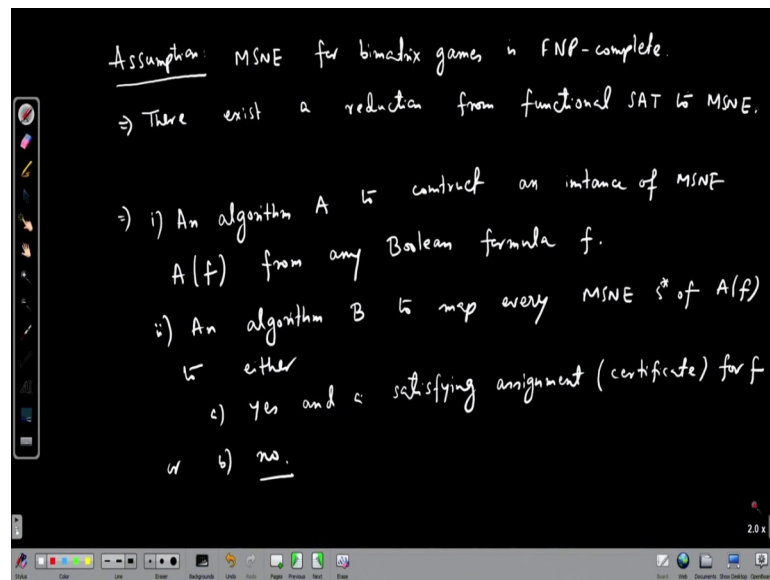 Assumption: MSNE for bimatrix games is FNP-complete.
⇒ There exist a reduction from functional SAT to MSNE.
⇒ i) An algorithm A to construct an intance of MSNE
A(f) from any Boolean formula f.
ii) An algorithm B to map every MSNE s* of A(f)
to either
a) yes and a satisfying assignment (certificate) for f
or b) no.
2.0 x
Stylus Color Line Eraser Backgrounds Undo Redo Pages Previous Next Erase Board Web Documents Show Desktop